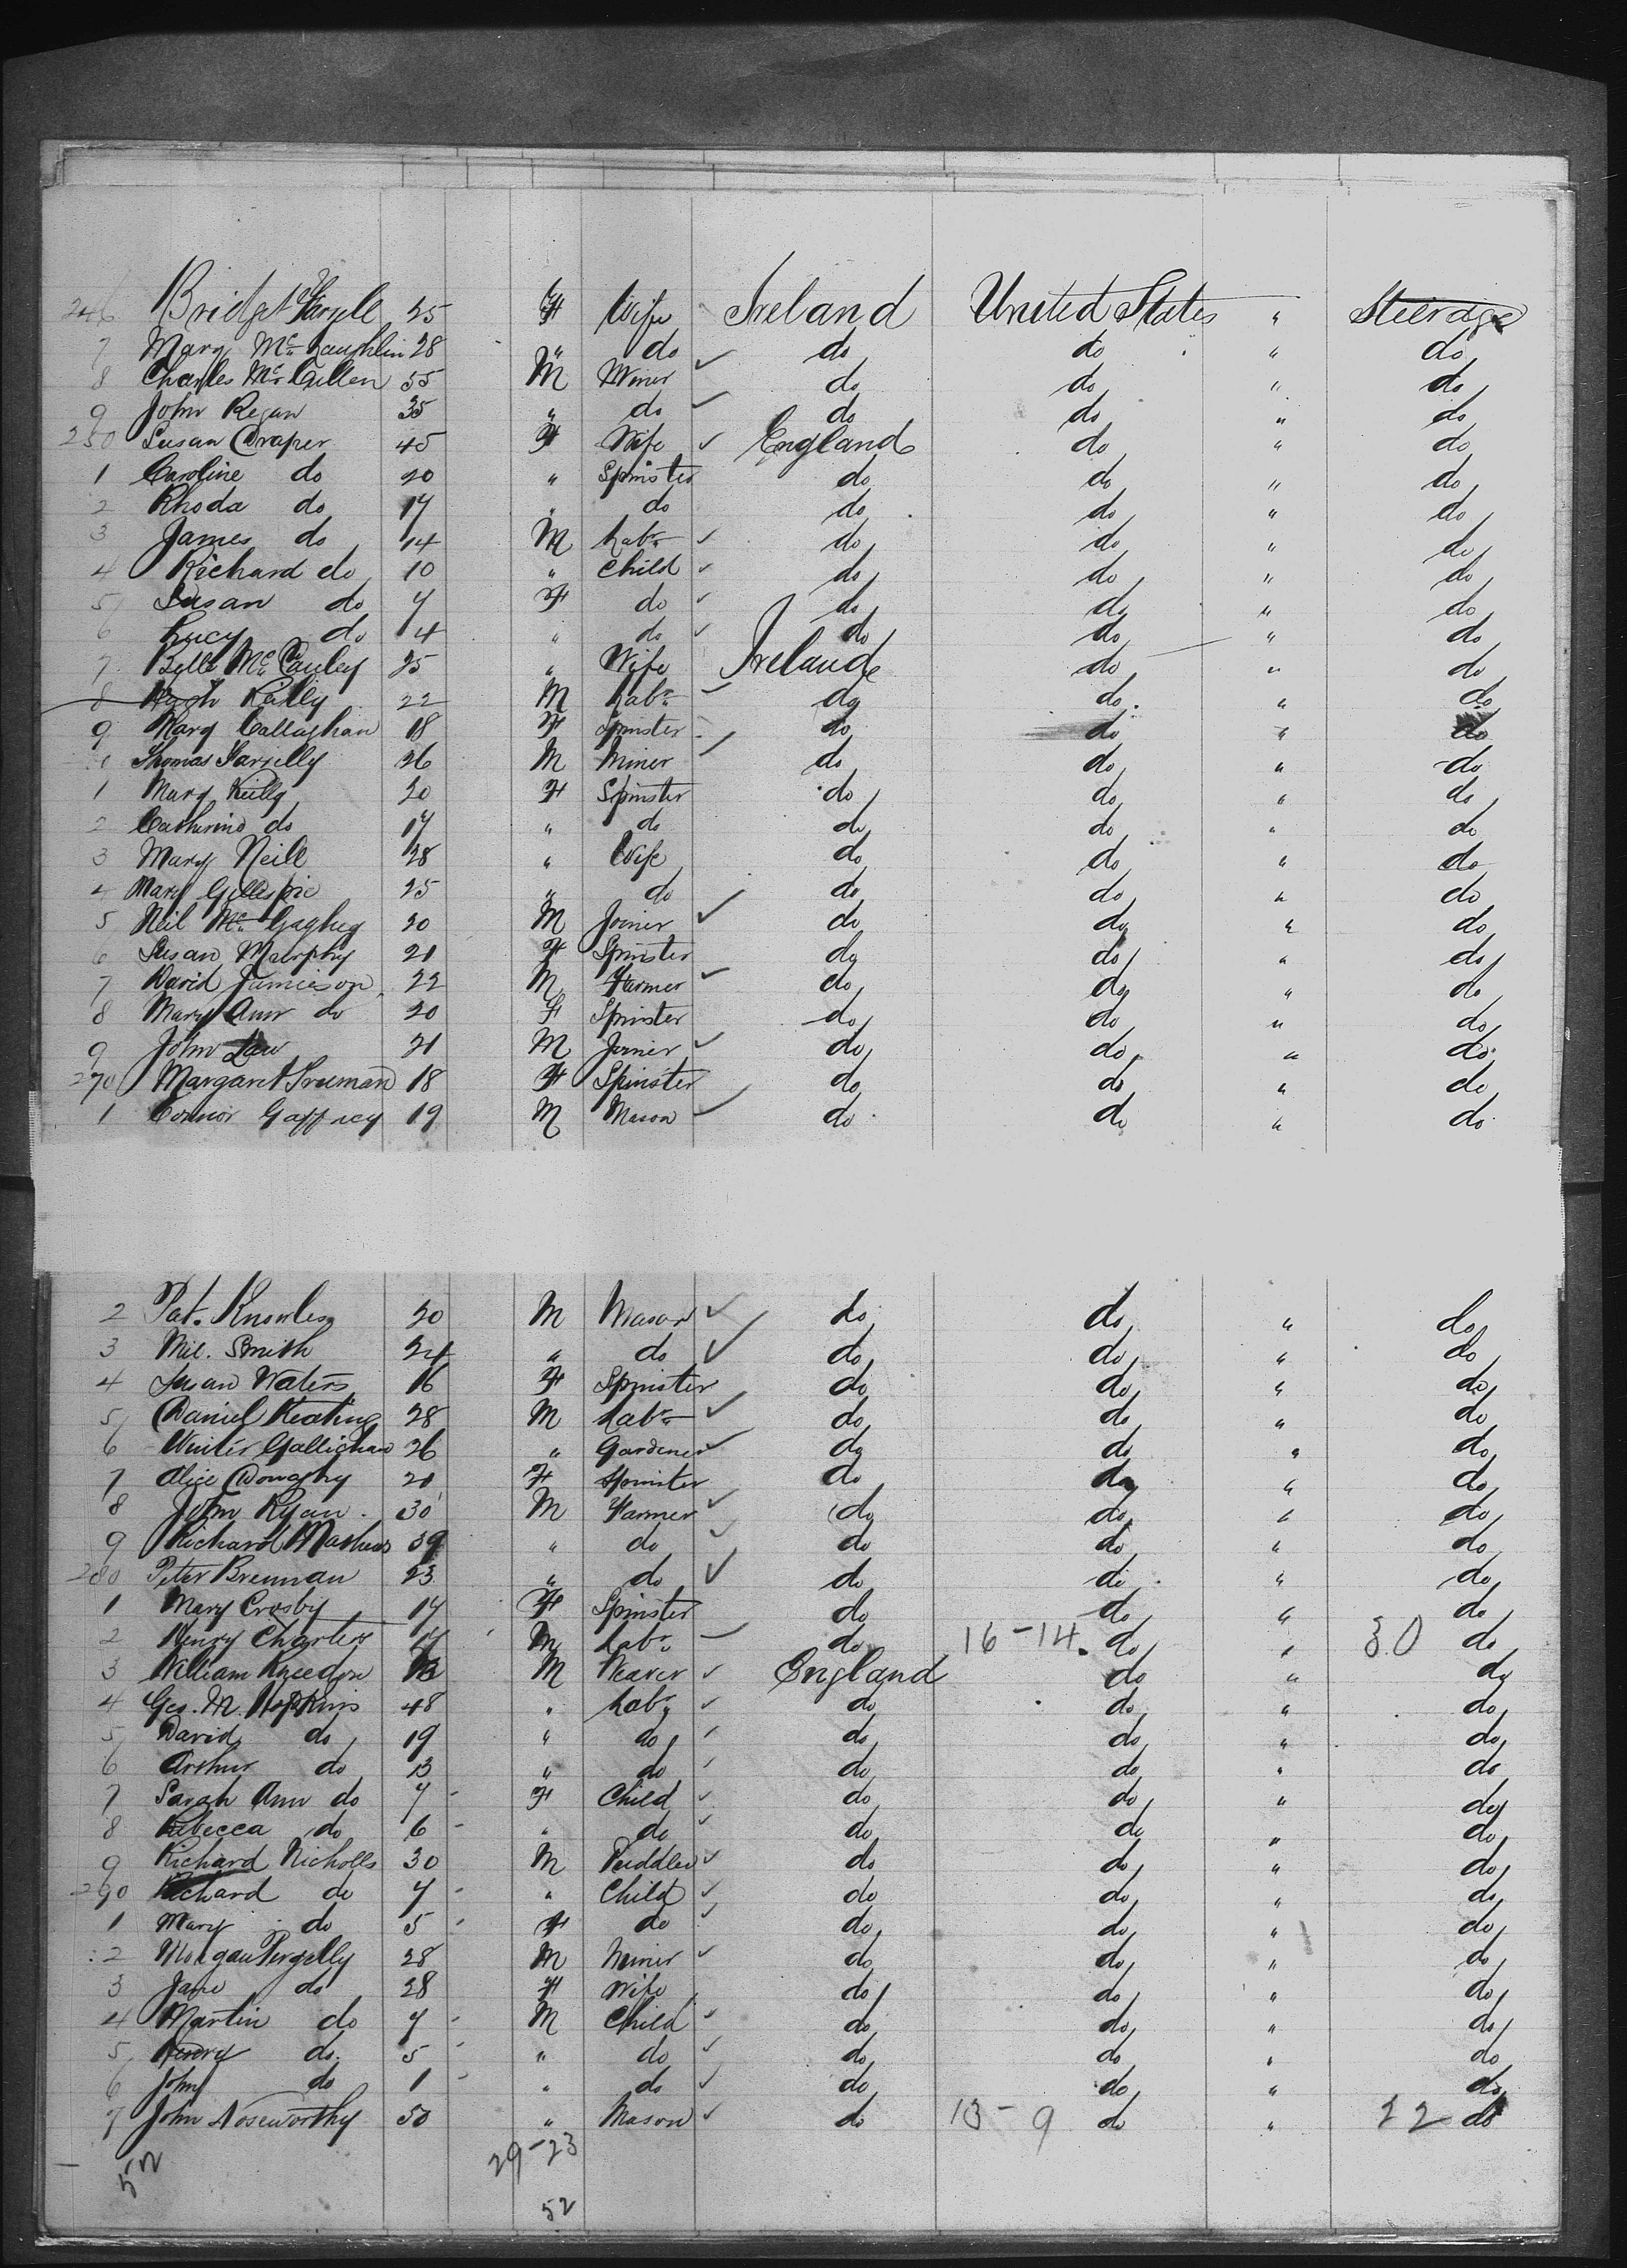 246 Bridget Farrell 25 F Wife Ireland United States " Steerage
7 Mary McLaughlin 28 " do do do " do
8 Charles McCullen 35 M Miner do do " do
9 John Regan 35 " do do do " do
250 Susan Draper 45 F Wife England do " do
1 Caroline do 20 " Spinster do do " do
2 Rhoda do 17 " do do do " do
3 James do 14 M Labr do do " do
4 Richard do 10 " Child do do " do
5 Susan do 7 F do do do " do
6 Lucy do 4 " do do do " do
7 Bella McCauley 25 " Wife Ireland do " do
8 Hugh Reilly 22 M Labr do do " do
9 Mary Callaghan 18 F Spinster do do " do
Thomas Farrelly 26 M Miner do do " do
1 Mary Reilly 20 F Spinster do do " do
2 Catherine do 17 " do do do " do
3 Mary Neill 28 " Wife do do " do
4 Mary Gillespie 25 " do do do " do
5 Neil McGaghey 20 M Joiner do do " do
6 Susan Murphy 21 F Spinster do do " do
7 David Jamieson 22 M Farmer do do " do
8 Mary Ann do 20 F Spinster do do " do
9 John Law 21 M Joiner do do " do
270 Margaret Freeman 18 F Spinster do do " do
1 Connor Gaffney 19 M Mason do do " do
2 Pat. Knowles 20 M Mason do do " do
3 Mic. Smith 24 " do do do " do
4 Susan Waters 16 F Spinster do do " do
5 Daniel Keating 28 M Labr do do " do
6 Winter Gallighan 26 " Gardener do do " do
7 Alice Doughy 20 F Spinster do do " do
8 John Ryan 30 M Farmer do do " do
9 Richard Mathews 39 " do do do " do
280 Peter Brennan 23 " do do do " do
1 Mary Crosby 17 F Spinster do do " do
2 Henry Charters M Labr do 16-14 do " 30 do
3 William Kneedon M Weaver England do " do
4 Geo. M. Hopkins 48 " Labr do do " do
5 David do 19 " do do do " do
6 Arthur do 13 " do do do " do
7 Sarah Ann do 7 F Child do do " do
8 Rebecca do 6 " do do do " do
9 Richard Nicholls 30 M Puddler do do " do
290 Richard do 7 " Child do do " do
1 Mary do 5 F do do do " do
2 Morgan Pergelly 28 M Miner do do " do
3 Jane do 28 F Wife do do " do
4 Martin do 7 M Child do do " do
5 Henry do 5 " do do do " do
6 John do 1 " do do do " do
7 John Noseworthy 50 " Mason do 13-9 do " 22 do
52 29-23
52